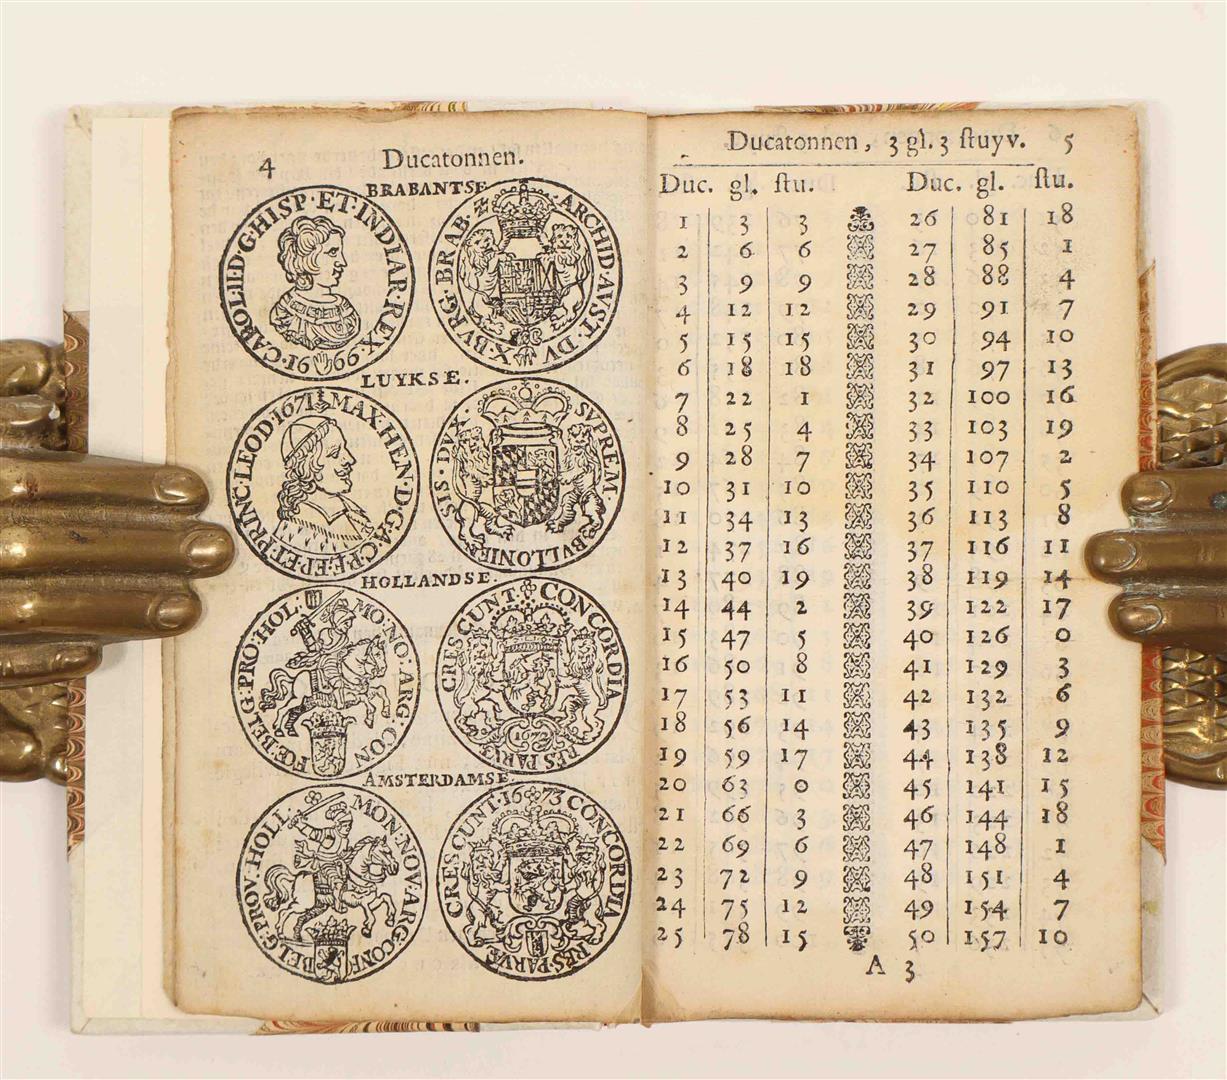 4 Ducatonnen.
BRABANTSE
CAROL·II·D·G·HISP·ET·INDIAR·REX· ·1666·
ARCHID·AVST·DVX·BVRG·BRAB·Z
LUYKSE.
MAX·HEN·D·G·A·C·P·E·EP·ET·PRINC·LEOD·1671
SVPREM· BVLLONIEN SIS·DVX·
HOLLANDSE.
MO·NO·ARG·CON FOE·BELG·PRO·HOL·
CONCORDIA RES PARVÆ CRESCUNT·
1672
AMSTERDAMSE
MON·NOV·ARG·CONF BELG·PROV·HOLL
CONCORDIA RES·PARVÆ CRESCUNT·1673
Ducatonnen, 3 gl. 3 ſtuyv. 5
Duc. gl. ſtu. Duc. gl. ſtu.
1 3 3 26 81 18
2 6 6 27 85 1
3 9 9 28 88 4
4 12 12 29 91 7
5 15 15 30 94 10
6 18 18 31 97 13
7 22 1 32 100 16
8 25 4 33 103 19
9 28 7 34 107 2
10 31 10 35 110 5
11 34 13 36 113 8
12 37 16 37 116 11
13 40 19 38 119 14
14 44 2 39 122 17
15 47 5 40 126 0
16 50 8 41 129 3
17 53 11 42 132 6
18 56 14 43 135 9
19 59 17 44 138 12
20 63 0 45 141 15
21 66 3 46 144 18
22 69 6 47 148 1
23 72 9 48 151 4
24 75 12 49 154 7
25 78 15 50 157 10
A 3